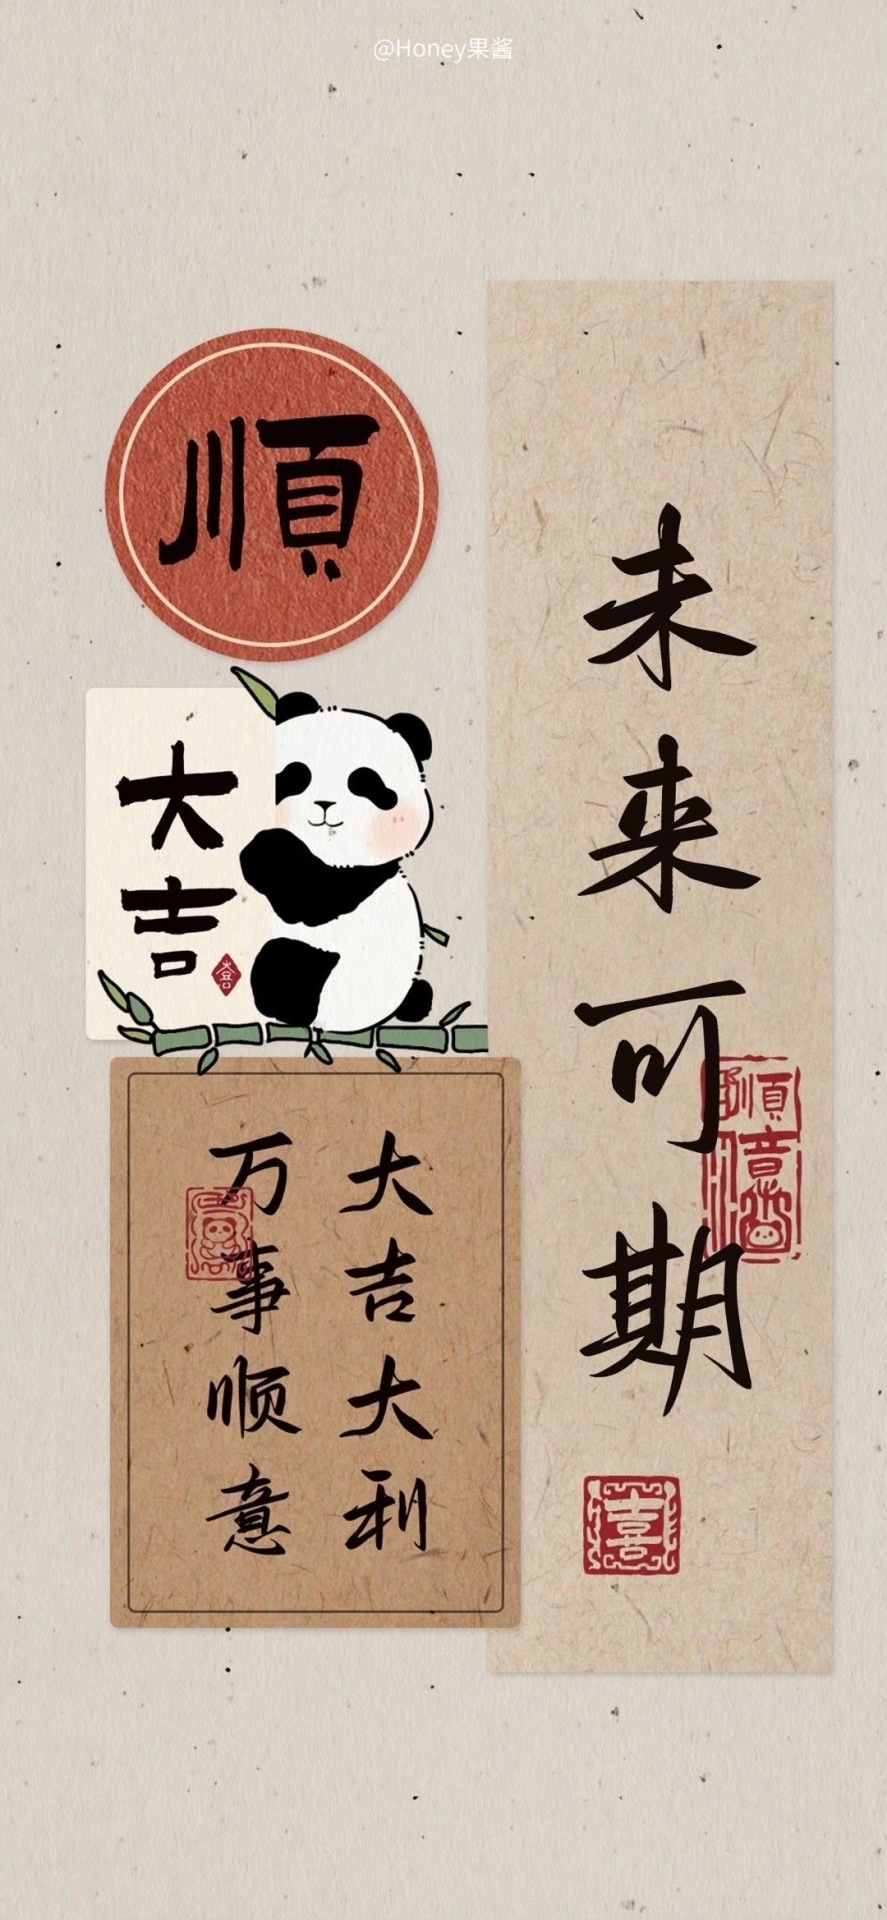 @Honey果酱
順
大吉
喜
未来可期
順意
大吉大利
万事顺意
喜